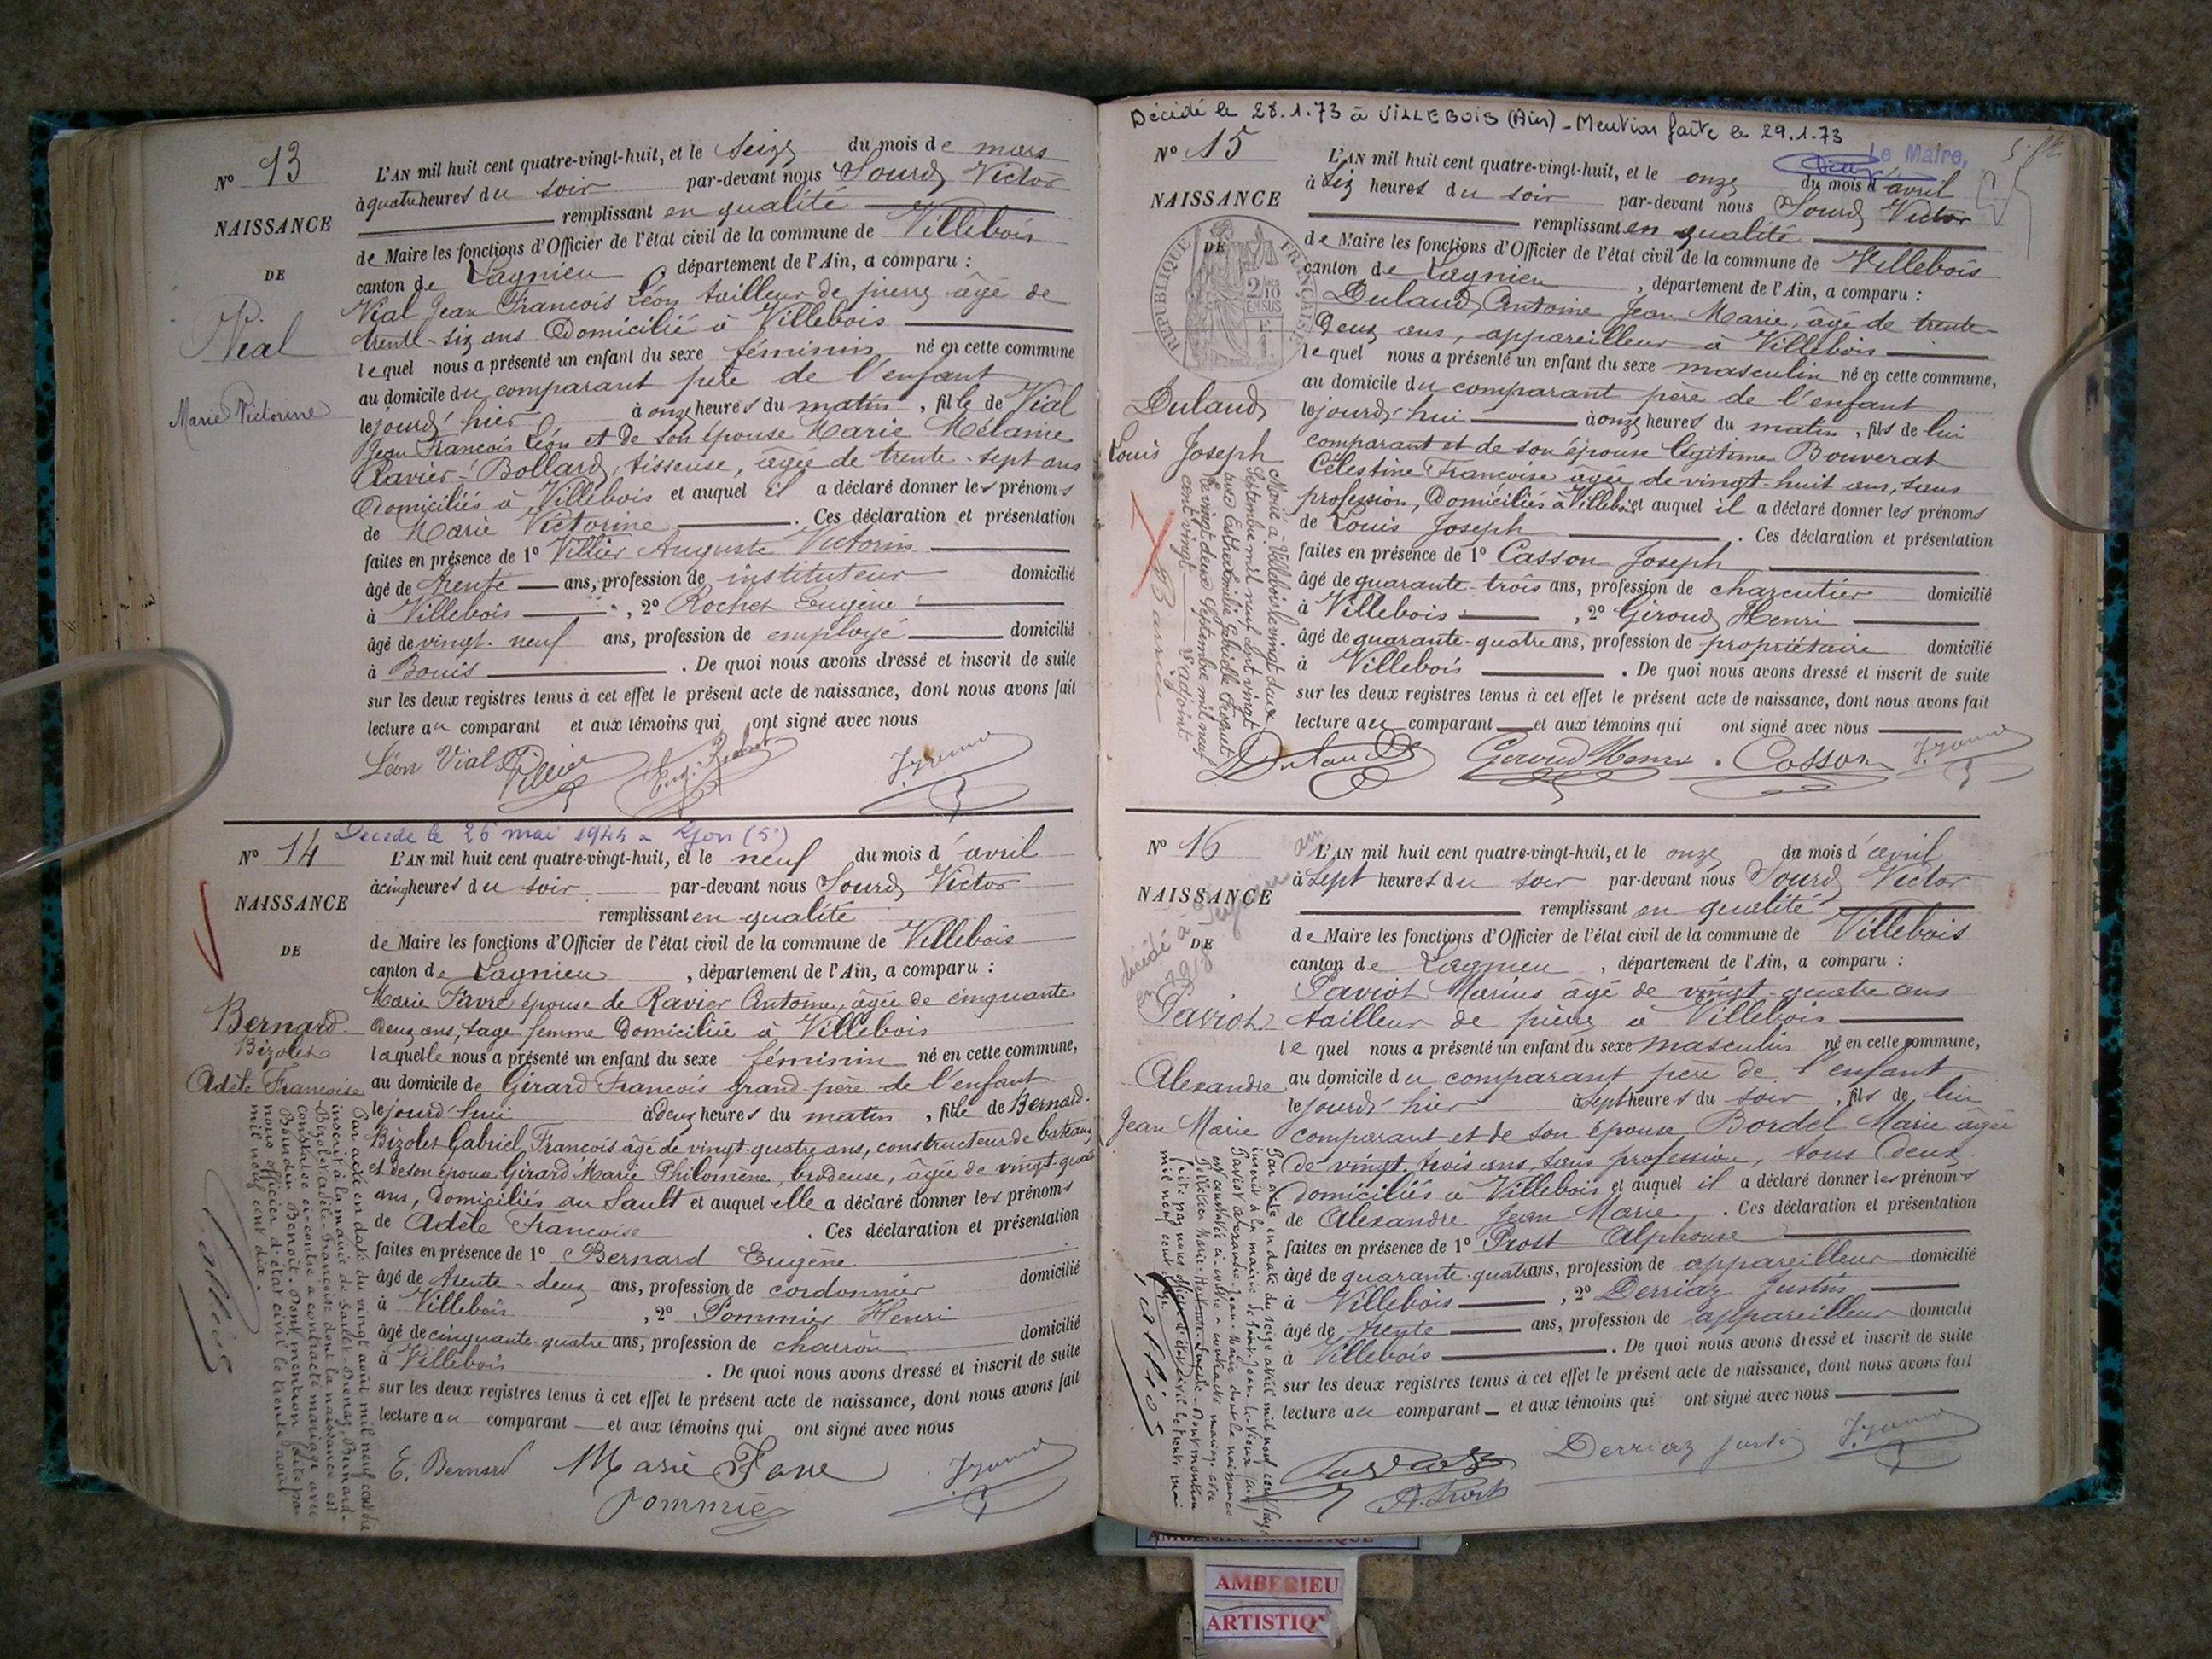 Nº 13
NAISSANCE
DE
Vial
Marie Victorine
L'AN mil huit cent quatre-vingt-huit, et le Seize du mois de mars
à quatre heures du soir par-devant nous Sourd Victor
remplissant en qualité
de Maire les fonctions d'Officier de l'état civil de la commune de Villebois
canton de Lagnieu, département de l'Ain, a comparu :
Vial Jean François Léon tailleur de pierre âgé de
trente-six ans Domicilié à Villebois
lequel nous a présenté un enfant du sexe féminin né en cette commune
au domicile du comparant père de l'enfant
le jourd'hier à onze heures du matin, fille de Vial
Jean François Léon et de son épouse Marie Mélanie
Ravier-Bollard, tisseuse, âgée de trente-sept ans
Domiciliés à Villebois et auquel il a déclaré donner les prénoms
de Marie Victorine. Ces déclaration et présentation
faites en présence de 1º Villier Auguste Victorin
âgé de trente ans, profession de instituteur domicilié
à Villebois, 2º Rochet Eugène
âgé de vingt-neuf ans, profession de employé domicilié
à Bouis. De quoi nous avons dressé et inscrit de suite
sur les deux registres tenus à cet effet le présent acte de naissance, dont nous avons fait
lecture au comparant et aux témoins qui ont signé avec nous
Léon Vial Villier Eug. Rochet
Décédé le 26 mai 1944 à Lyon (5e)
Nº 14
NAISSANCE
DE
Bernard
Bizolet
Adèle Françoise
L'AN mil huit cent quatre-vingt-huit, et le neuf du mois d'avril
à cinq heures du soir par-devant nous Sourd Victor
remplissant en qualité
de Maire les fonctions d'Officier de l'état civil de la commune de Villebois
canton de Lagnieu, département de l'Ain, a comparu :
Marie Favre épouse de Ravier Antoine, âgée de cinquante
deux ans, sage-femme Domiciliée à Villebois
laquelle nous a présenté un enfant du sexe féminin né en cette commune,
au domicile de Girard François grand-père de l'enfant
le jourd'hui à deux heures du matin, fille de Bernard-
Bizolet Gabriel François âgé de vingt-quatre ans, constructeur de bateaux
et de son épouse Girard Marie Philomène, brodeuse, âgée de vingt-quatre
ans, domiciliés au Sault et auquel elle a déclaré donner les prénoms
de Adèle Françoise. Ces déclaration et présentation
faites en présence de 1º Bernard Eugène
âgé de trente-deux ans, profession de cordonnier domicilié
à Villebois, 2º Pommier Henri
âgé de cinquante-quatre ans, profession de charron domicilié
à Villebois. De quoi nous avons dressé et inscrit de suite
sur les deux registres tenus à cet effet le présent acte de naissance, dont nous avons fait
lecture au comparant et aux témoins qui ont signé avec nous
E. Bernard Marie Favre
Pommier
Par acte en date du vingt août mil neuf cent dix
inscrit à la mairie de Sault-Brénaz, Bernard-
Bizolet Adèle Françoise dont la naissance est
constatée ci-contre a contracté mariage avec
Baudin Benoit. Dont mention faite par
nous officier d'état civil le trente août
mil neuf cent dix.
Décédé le 28.1.73 à VILLEBOIS (Ain) - Mention faite le 29.1.73
Le Maire,
Nº 15
NAISSANCE
DE
RÉPUBLIQUE FRANÇAISE
2/10 EN SUS
Dulaud
Louis Joseph
L'AN mil huit cent quatre-vingt-huit, et le onze du mois d'avril
à six heures du soir par-devant nous Sourd Victor
remplissant en qualité
de Maire les fonctions d'Officier de l'état civil de la commune de Villebois
canton de Lagnieu, département de l'Ain, a comparu :
Dulaud, Antoine Jean Marie, âgé de trente-
deux ans, appareilleur à Villebois
lequel nous a présenté un enfant du sexe masculin né en cette commune,
au domicile du comparant père de l'enfant
le jourd'hui à onze heures du matin, fils de lui
comparant et de son épouse légitime Bouverat
Célestine Françoise âgée de vingt-huit ans, sans
profession, Domiciliés à Villebois et auquel il a déclaré donner les prénoms
de Louis Joseph. Ces déclaration et présentation
faites en présence de 1º Casson Joseph
âgé de quarante-trois ans, profession de charcutier domicilié
à Villebois, 2º Giroud Henri
âgé de quarante-quatre ans, profession de propriétaire domicilié
à Villebois. De quoi nous avons dressé et inscrit de suite
sur les deux registres tenus à cet effet le présent acte de naissance, dont nous avons fait
lecture au comparant et aux témoins qui ont signé avec nous
Dulaud Giroud Henri Casson
Marié à Villebois le vingt deux
Septembre mil neuf cent vingt
avec Esther Emilie Gabrielle
Le vingt deux Septembre mil neuf
cent vingt L'adjoint
Nº 16
NAISSANCE
DE
décédé à
Paviot
Alexandre
Jean Marie
L'AN mil huit cent quatre-vingt-huit, et le onze du mois d'avril
à sept heures du soir par-devant nous Sourd Victor
remplissant en qualité
de Maire les fonctions d'Officier de l'état civil de la commune de Villebois
canton de Lagnieu, département de l'Ain, a comparu :
Paviot Marius âgé de vingt-quatre ans
tailleur de pierre à Villebois
lequel nous a présenté un enfant du sexe masculin né en cette commune,
au domicile du comparant père de l'enfant
le jourd'hier à sept heures du soir, fils de lui
comparant et de son épouse Bordel Marie âgée
de vingt-trois ans, sans profession, tous deux
domiciliés à Villebois et auquel il a déclaré donner les prénoms
de Alexandre Jean Marie. Ces déclaration et présentation
faites en présence de 1º Prost Alphonse
âgé de quarante-quatre ans, profession de appareilleur domicilié
à Villebois, 2º Derriaz Justin
âgé de trente ans, profession de appareilleur domicilié
à Villebois. De quoi nous avons dressé et inscrit de suite
sur les deux registres tenus à cet effet le présent acte de naissance, dont nous avons fait
lecture au comparant et aux témoins qui ont signé avec nous
Paviot Derriaz Justin
A. Prost
Par acte en date du seize avril mil neuf cent
inscrit à la mairie de Saint-Jean-le-Vieux (Ain)
Paviot Alexandre-Jean-Marie dont la naissance
est constatée ci-contre a contracté mariage avec
Dont mention
faite par nous officier d'état civil le trente mai
mil neuf cent
AMBERIEU ARTISTIQUE
AMBERIEU
ARTISTIQ